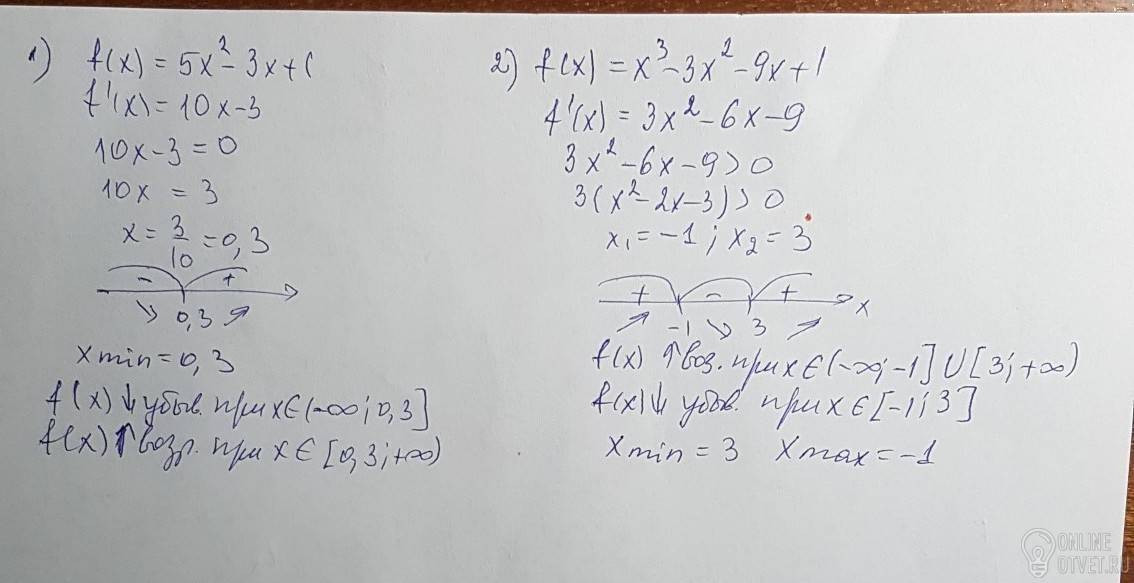 1) f(x) = 5x² - 3x + 1
f'(x) = 10x - 3
10x - 3 = 0
10x = 3
x = 3/10 = 0,3
- +
↘ 0,3 ↗
x min = 0,3
f(x) ↓ убыв. при x ∈ (-∞; 0,3]
f(x) ↑ возр. при x ∈ [0,3; +∞)
2) f(x) = x³ - 3x² - 9x + 1
f'(x) = 3x² - 6x - 9
3x² - 6x - 9 > 0
3(x² - 2x - 3) > 0
x₁ = -1; x₂ = 3
+ - + x
↗ -1 ↘ 3 ↗
f(x) ↑ воз. при x ∈ (-∞; -1] ∪ [3; +∞)
f(x) ↓ убыв. при x ∈ [-1; 3]
x min = 3 x max = -1
ONLINE
OTVET.RU